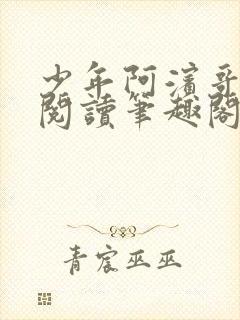 少年阿濱哥
閱讀筆趣閣
青宸巫巫